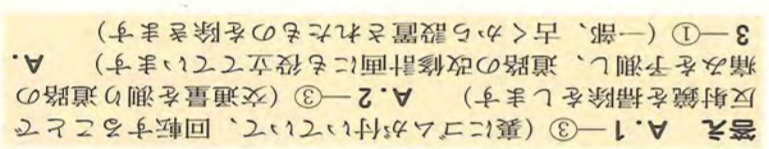 答え　A.1―③（裏にゴムが付いていて、回転することで
反射鏡を掃除をします）　A.2―③（交通量を測り道路の
痛みを予測し、道路の改修計画にも役立てています）　A.
3―①（一部、古くから設置されたものを除きます）